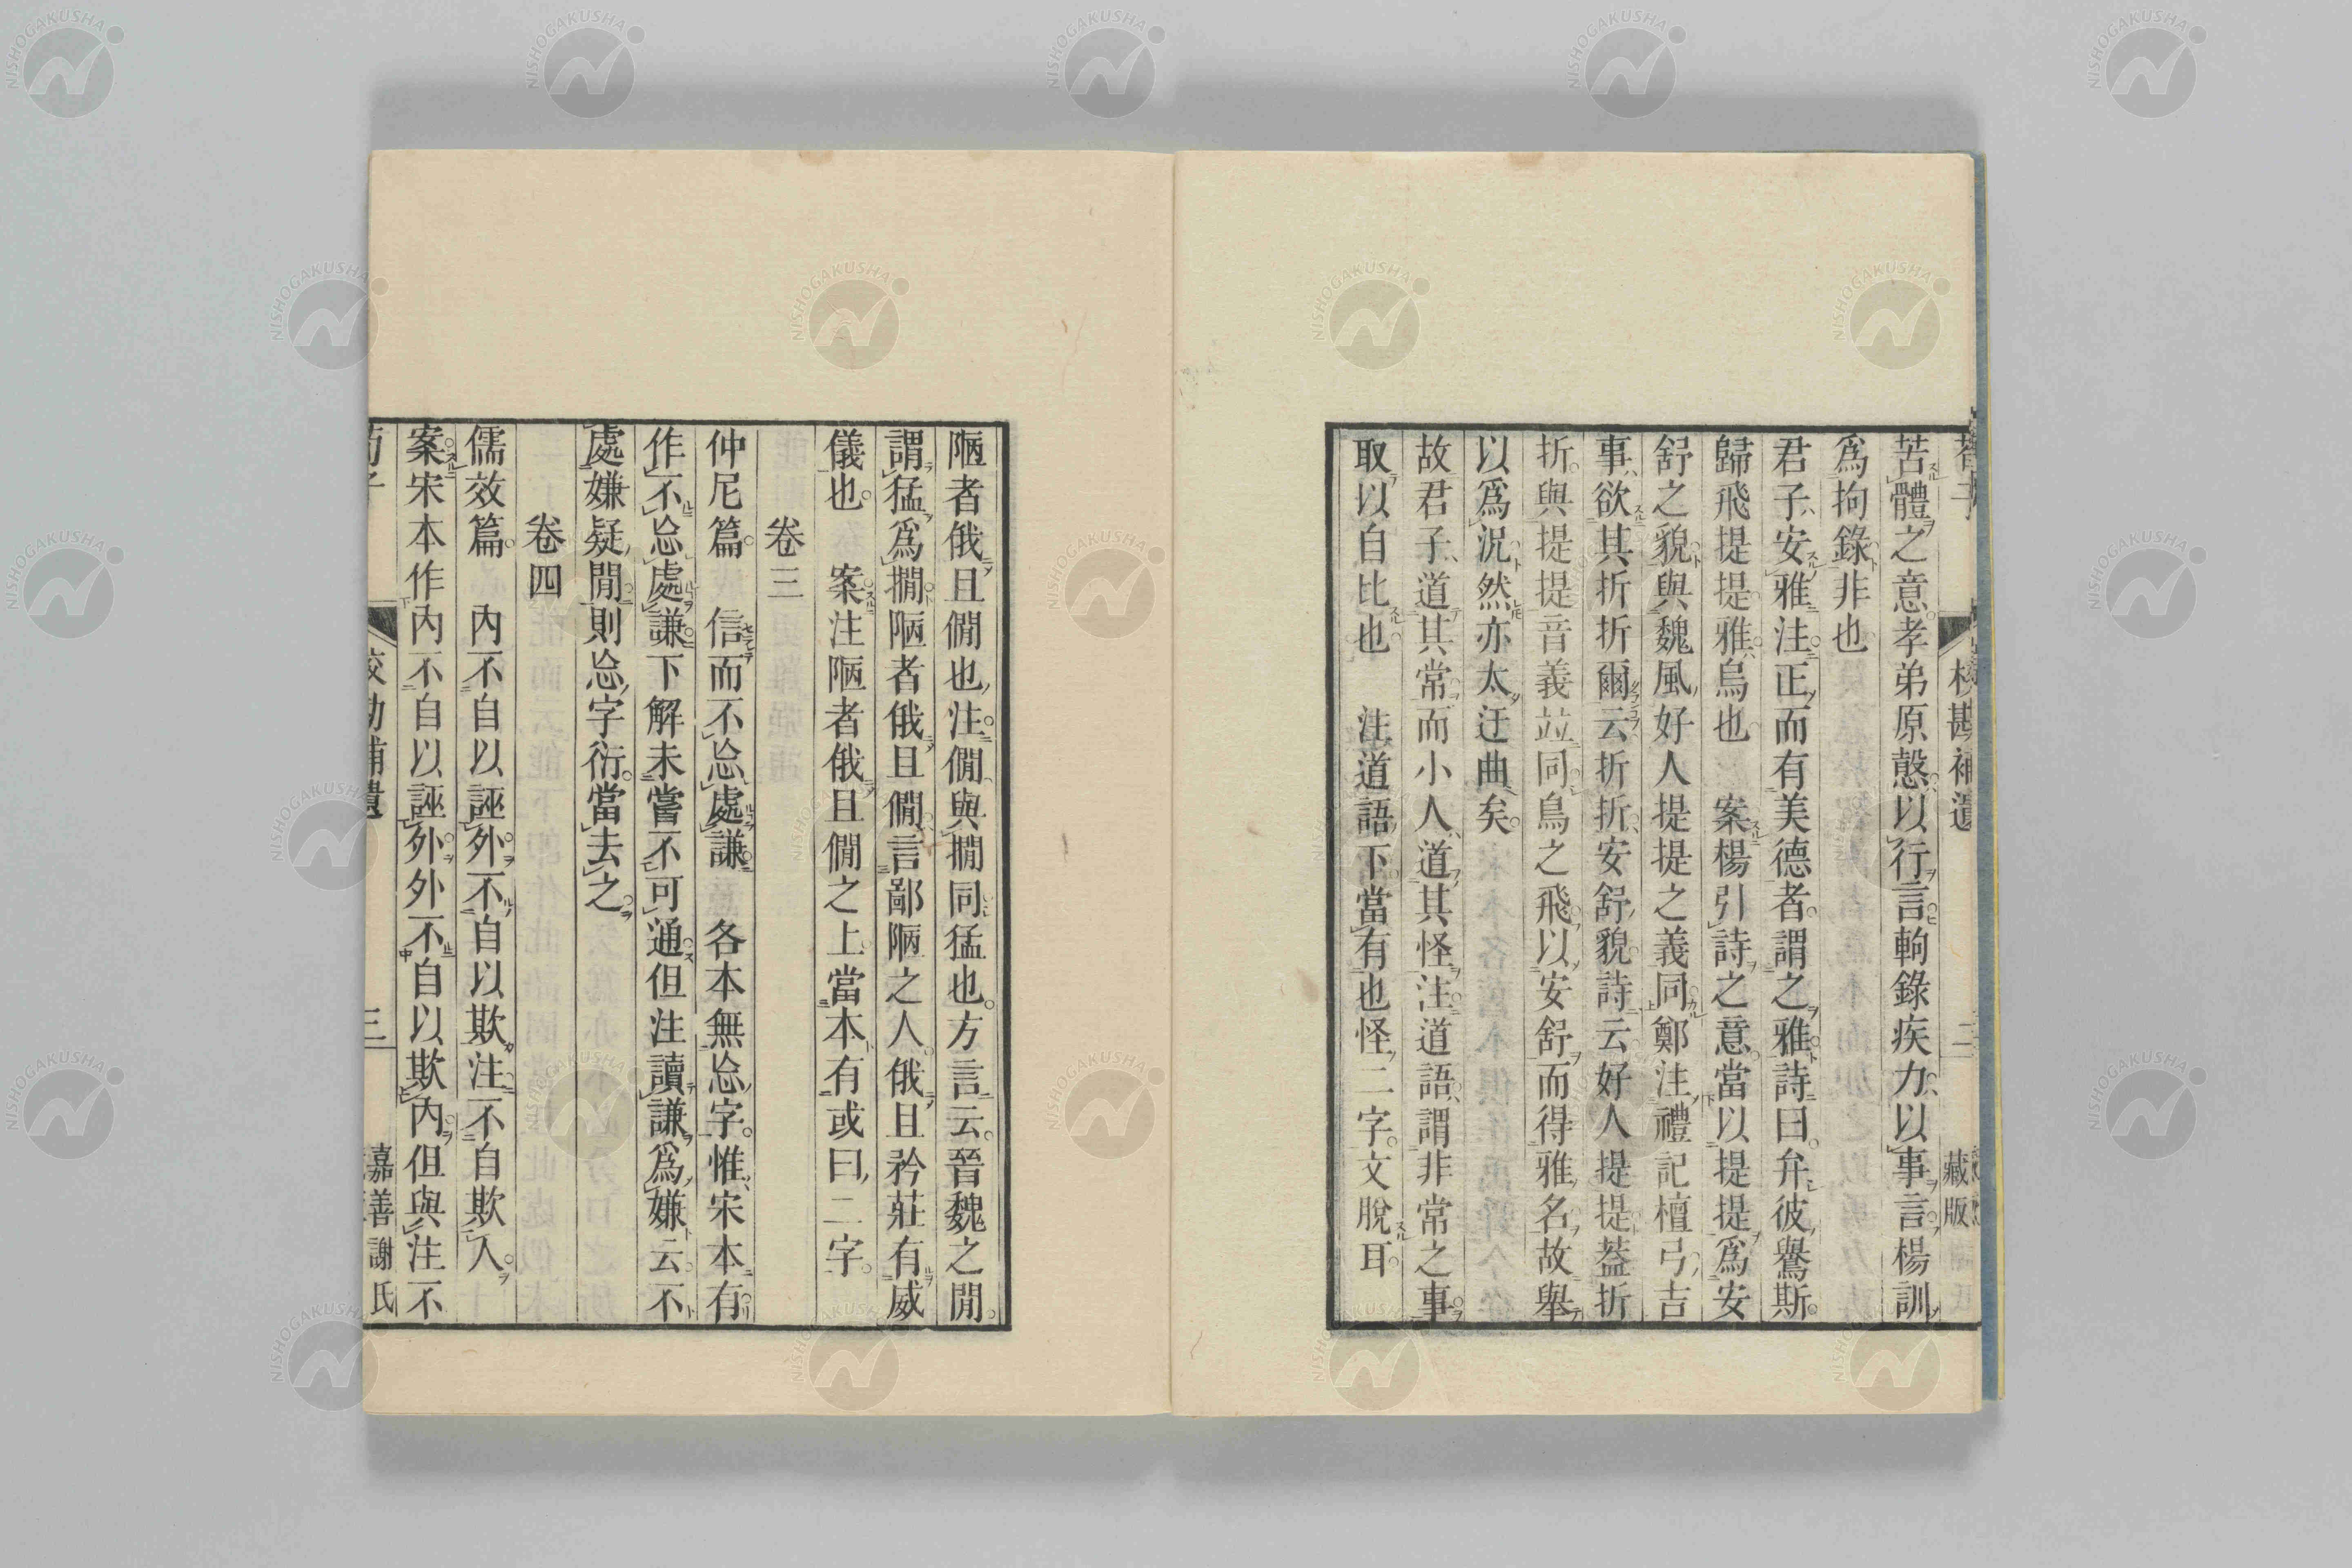 苦體之意孝弟原愨以行言軥錄疾力以事言楊訓
爲拘錄非也
君子安雅注正而有美德者謂之雅詩曰弁彼鸒斯
歸飛提提雅烏也　案楊引詩之意當以提提爲安
舒之貌與魏風好人提提之義同鄭注禮記檀弓吉
事欲其折折爾云折折安舒貌詩云好人提提葢折
折與提提音義竝同烏之飛以安舒而得雅名故舉
以爲況然亦太迂曲矣
故君子道其常而小人道其怪注道語謂非常之事
取以自比也　注道語下當有也怪二字文脫耳
陋者俄且僩也注僩與撊同猛也方言云晉魏之閒
謂猛爲撊陋者俄且僩言鄙陋之人俄且矜莊有威
儀也　案注陋者俄且僩之上當本有或曰二字
卷三
仲尼篇　信而不忩處謙　各本無忩字惟宋本有
作不忩處謙下解未嘗不可通但注讀謙爲嫌云不
處嫌疑閒則忩字衍當去之
卷四
儒效篇　內不自以誣外不自以欺注不自欺人
案宋本作內不自以誣外外不自以欺內但與注不
校勘補遺
三
嘉善謝氏
NISHOGAKUSHA